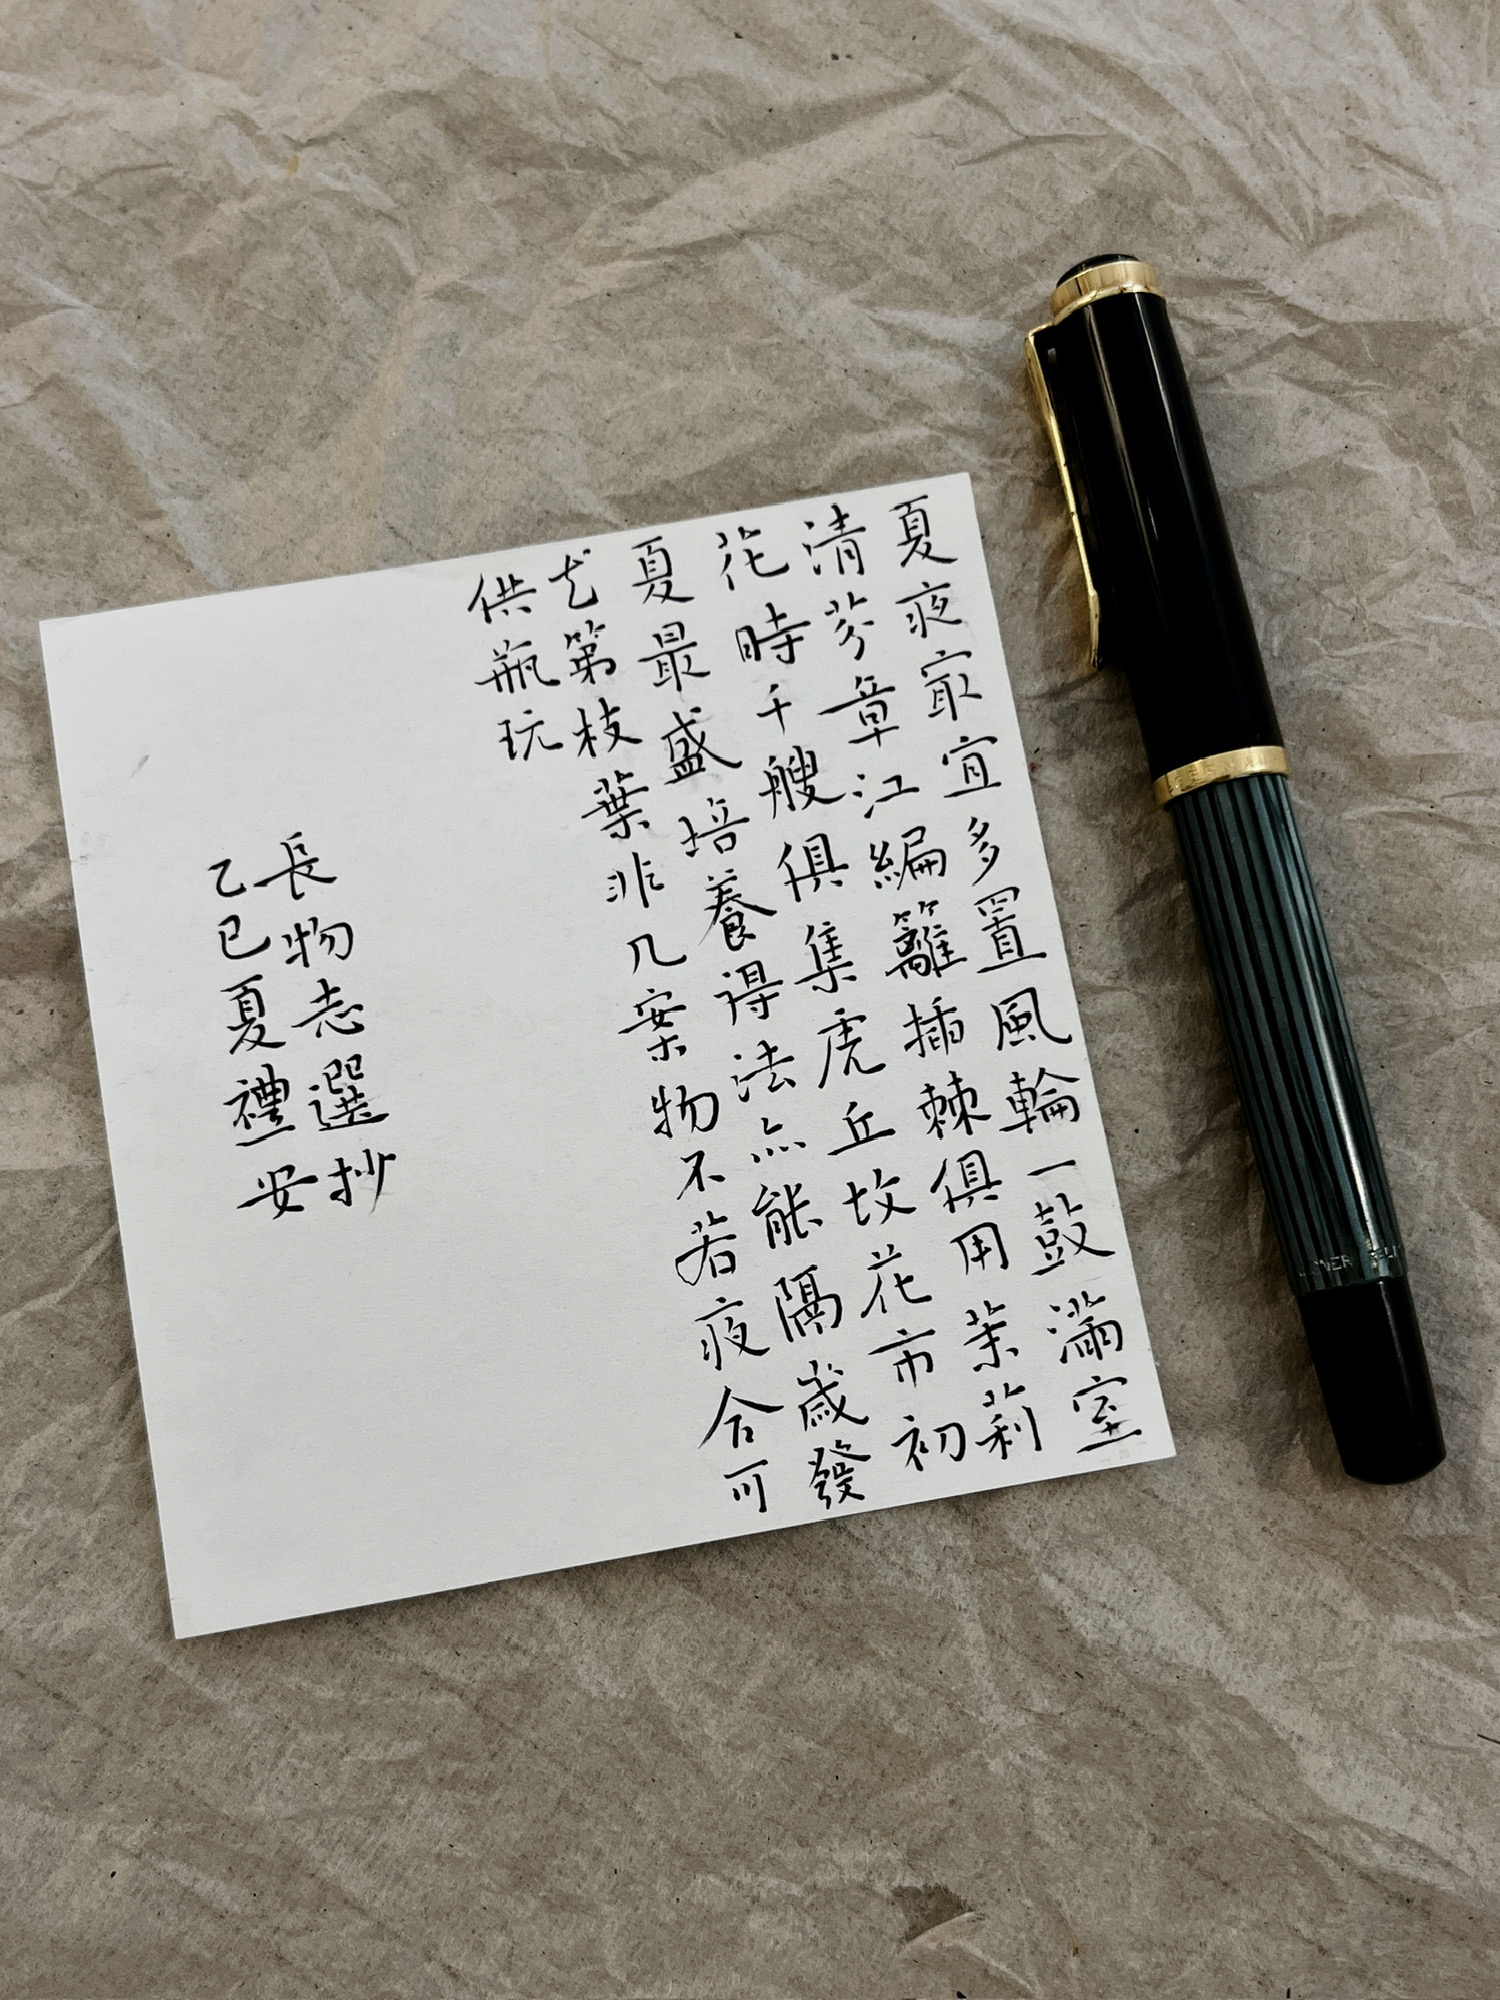 夏夜冣宜多置風輪一鼓滿室
清芬章江編籬插棘俱用茉莉
花時千艘俱集虎丘故花市初
夏最盛培養得法亦能隔歲發
花第枝葉非几案物不若夜合可
供瓶玩
長物志選抄
乙巳夏禮安